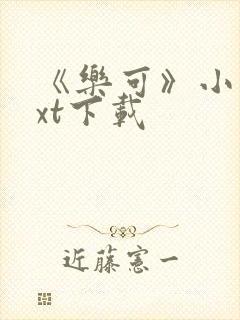 《樂可》小
xt下載
近藤憲一